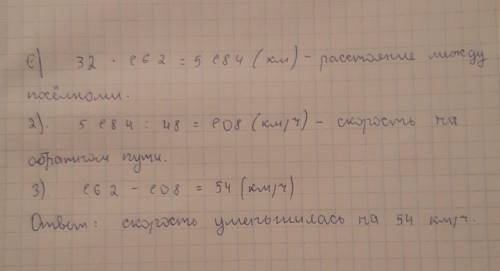 1) 32 · 162 = 5184 (км) - расстояние между
посёлками.
2). 5184 : 48 = 108 (км/ч) - скорость на
обратном пути.
3) 162 - 108 = 54 (км/ч)
Ответ: скорость уменьшилась на 54 км/ч.